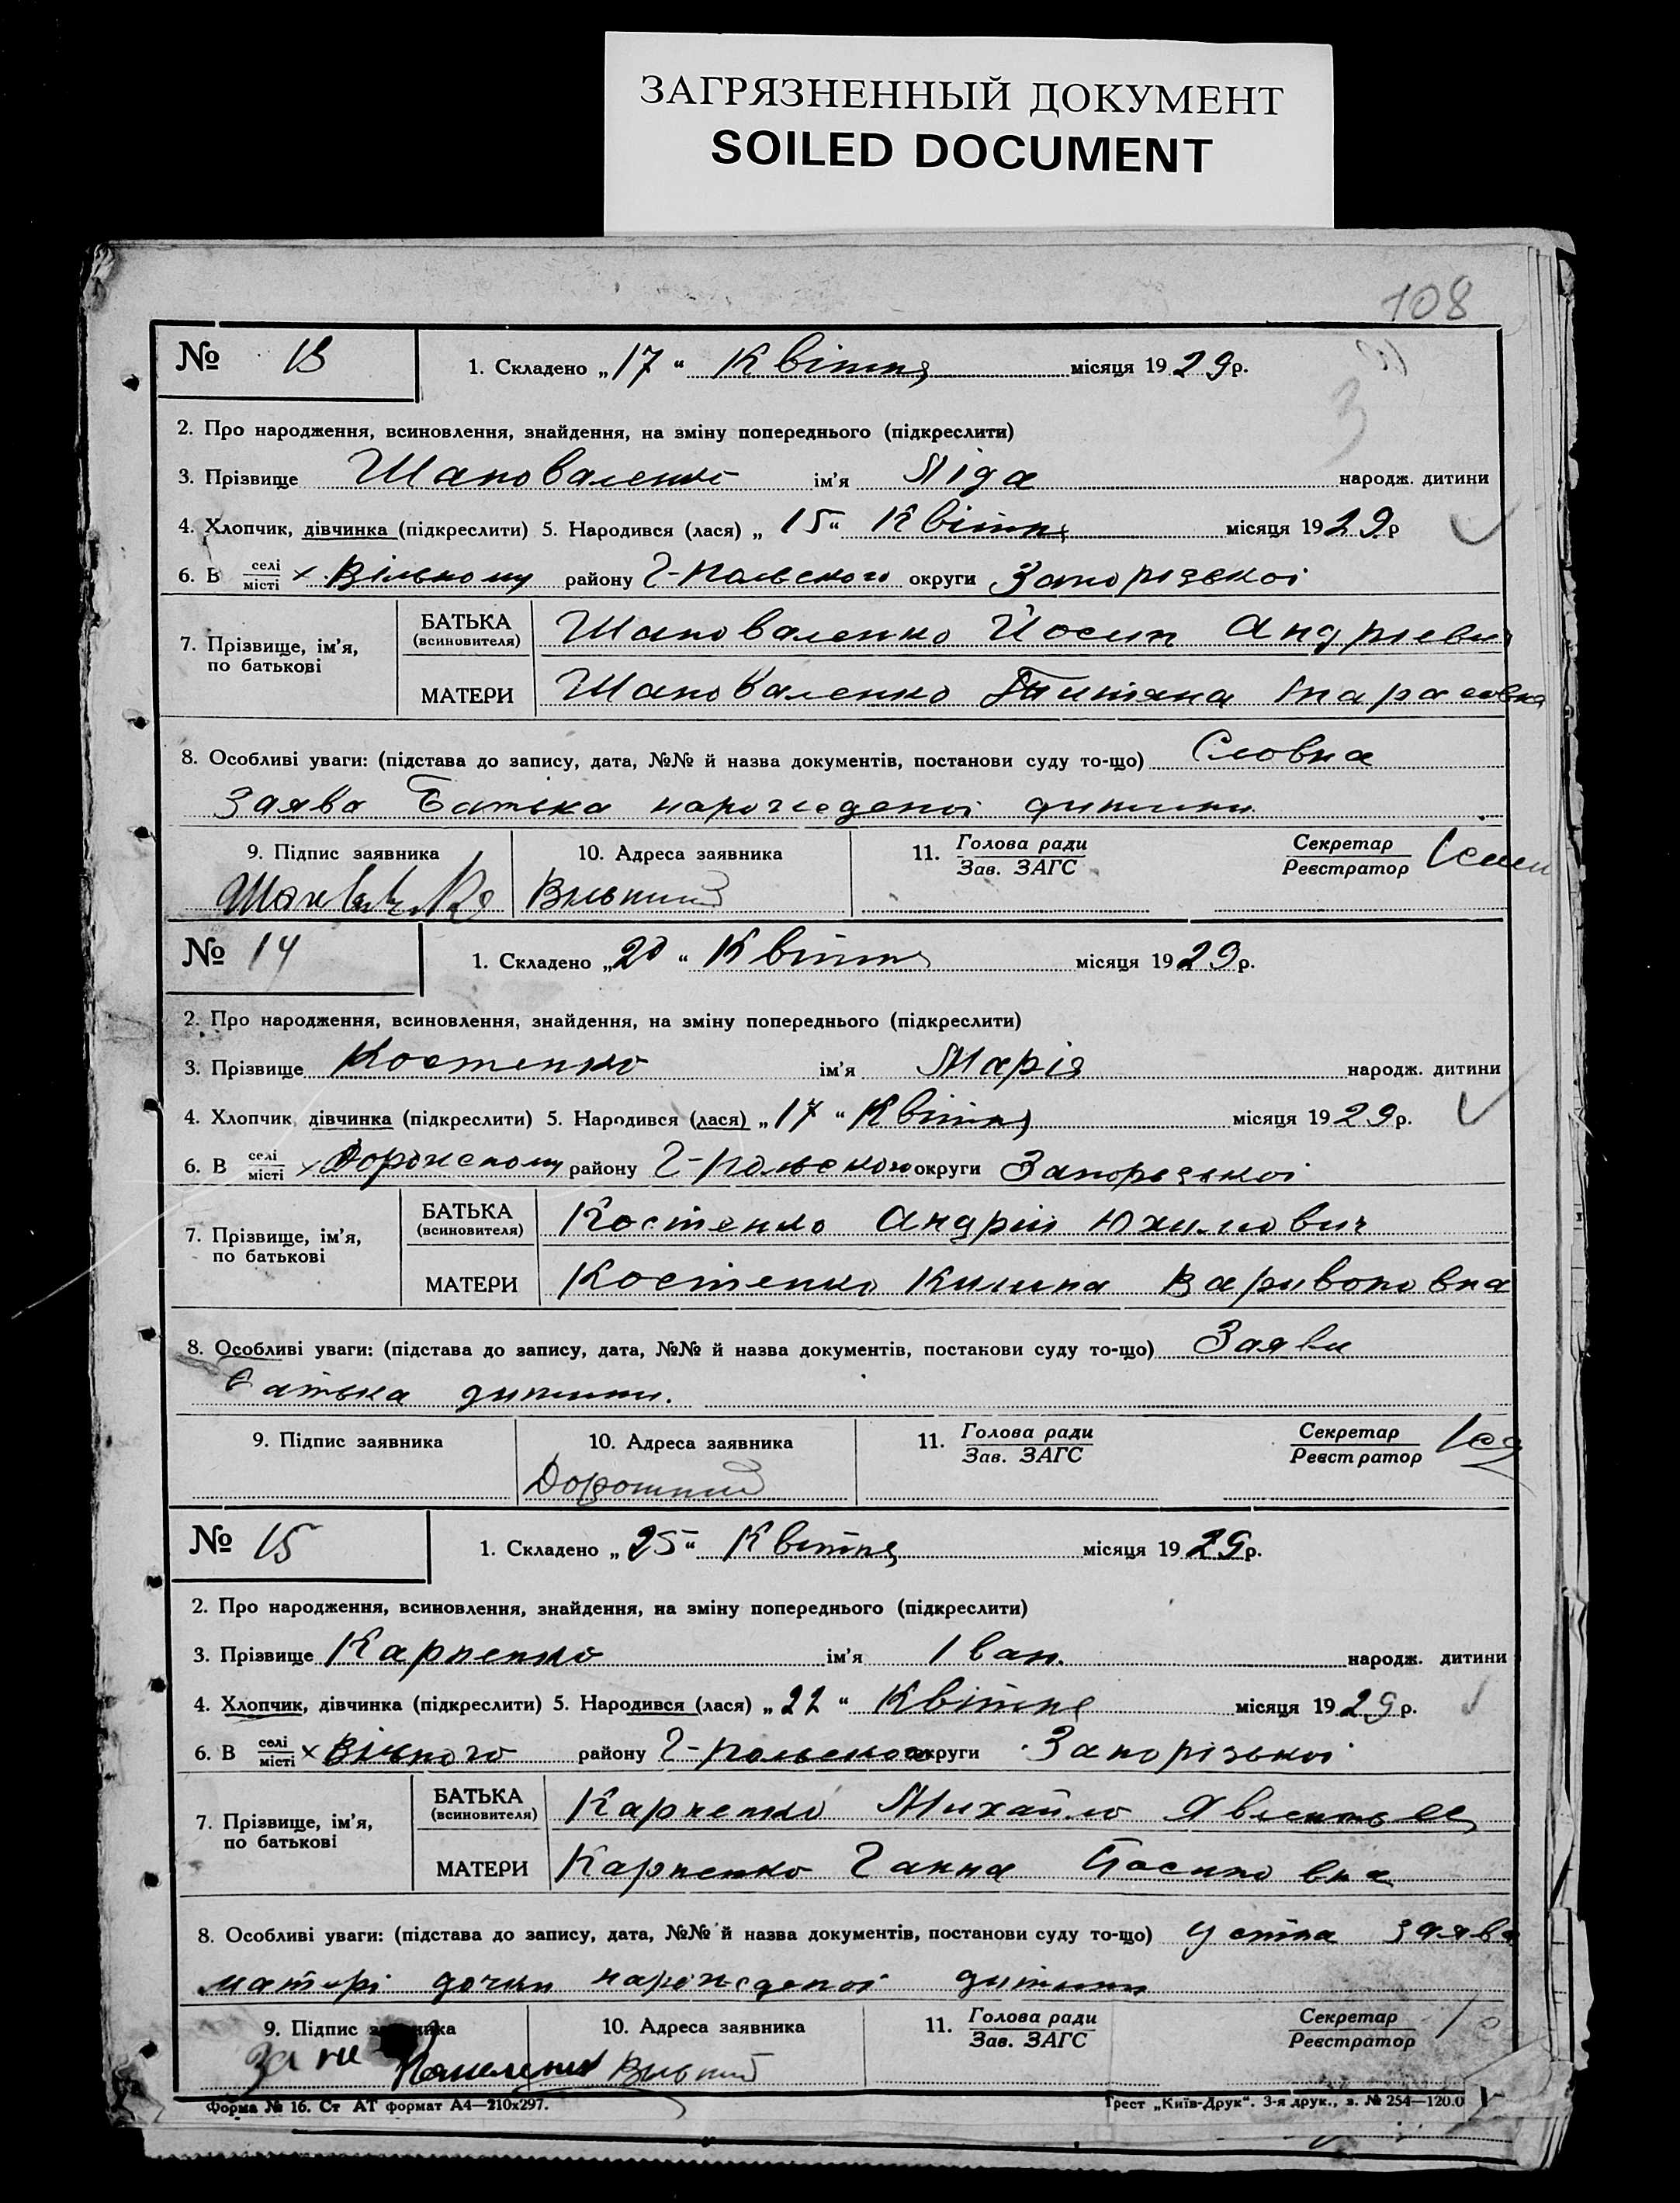 ЗАГРЯЗНЕННЫЙ ДОКУМЕНТ
SOILED DOCUMENT
108
3
№ 13 1. Складено „17“ Квітня місяця 1929 р.
2. Про народження, всиновлення, знайдення, на зміну попереднього (підкреслити)
3. Прізвище Шаповаленко ім'я Ліда народж. дитини
4. Хлопчик, дівчинка (підкреслити) 5. Народився (лася) „15“ Квітня місяця 1929 р
6. В селі/місті × Вільному району Г-Польського округи Запорізької
7. Прізвище, ім'я, по батькові
БАТЬКА (всиновителя) Шаповаленко Йосип Андрієвич
МАТЕРИ Шаповаленко Титяна Тарасовна
8. Особливі уваги: (підстава до запису, дата, №№ й назва документів, постанови суду то-що) Словна
заява батька нарожденої дитини
9. Підпис заявника 10. Адреса заявника 11. Голова ради/Зав. ЗАГС Секретар/Реєстратор
Вильний
№ 14 1. Складено „20“ Квітня місяця 1929 р.
2. Про народження, всиновлення, знайдення, на зміну попереднього (підкреслити)
3. Прізвище Костенко ім'я Марія народж. дитини
4. Хлопчик, дівчинка (підкреслити) 5. Народився (лася) „17“ Квітня місяця 1929 р.
6. В селі/місті × району Г-польського округи Запорізької
7. Прізвище, ім'я, по батькові
БАТЬКА (всиновителя) Костенко Андрій Юхимович
МАТЕРИ Костенко Килина Варивоновна
8. Особливі уваги: (підстава до запису, дата, №№ й назва документів, постанови суду то-що) Заяви
батька дитини.
9. Підпис заявника 10. Адреса заявника 11. Голова ради/Зав. ЗАГС Секретар/Реєстратор
№ 15 1. Складено „25“ Квітня місяця 1929 р.
2. Про народження, всиновлення, знайдення, на зміну попереднього (підкреслити)
3. Прізвище Карпенко ім'я Іван. народж. дитини
4. Хлопчик, дівчинка (підкреслити) 5. Народився (лася) „22“ Квітня місяця 1929 р.
6. В селі/місті × Вільного району Г-польського округи Запорізької
7. Прізвище, ім'я, по батькові
БАТЬКА (всиновителя) Карпенко Михайло
МАТЕРИ Карпенко Ганна Йосиповна
8. Особливі уваги: (підстава до запису, дата, №№ й назва документів, постанови суду то-що) Устна заява
матері дочки нарожденої дитини
9. Підпис заявника 10. Адреса заявника 11. Голова ради/Зав. ЗАГС Секретар/Реєстратор
За не Вильний
Форма № 16. Ст АТ формат А4—210х297. Трест „Київ-Друк“. 3-я друк., з. № 254—120.0